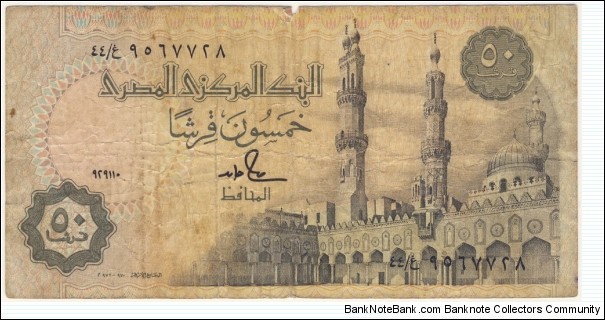 ٤٤/غ ٩٥٦٧٧٢٨
٥٠
قرش
البنك المركزى المصرى
خمسون قرشًا
٩٢٩١١٠
المحافظ
٥٠
قرش
٤٤/غ ٩٥٦٧٧٢٨
BankNoteBank.com, Banknote Collectors Community